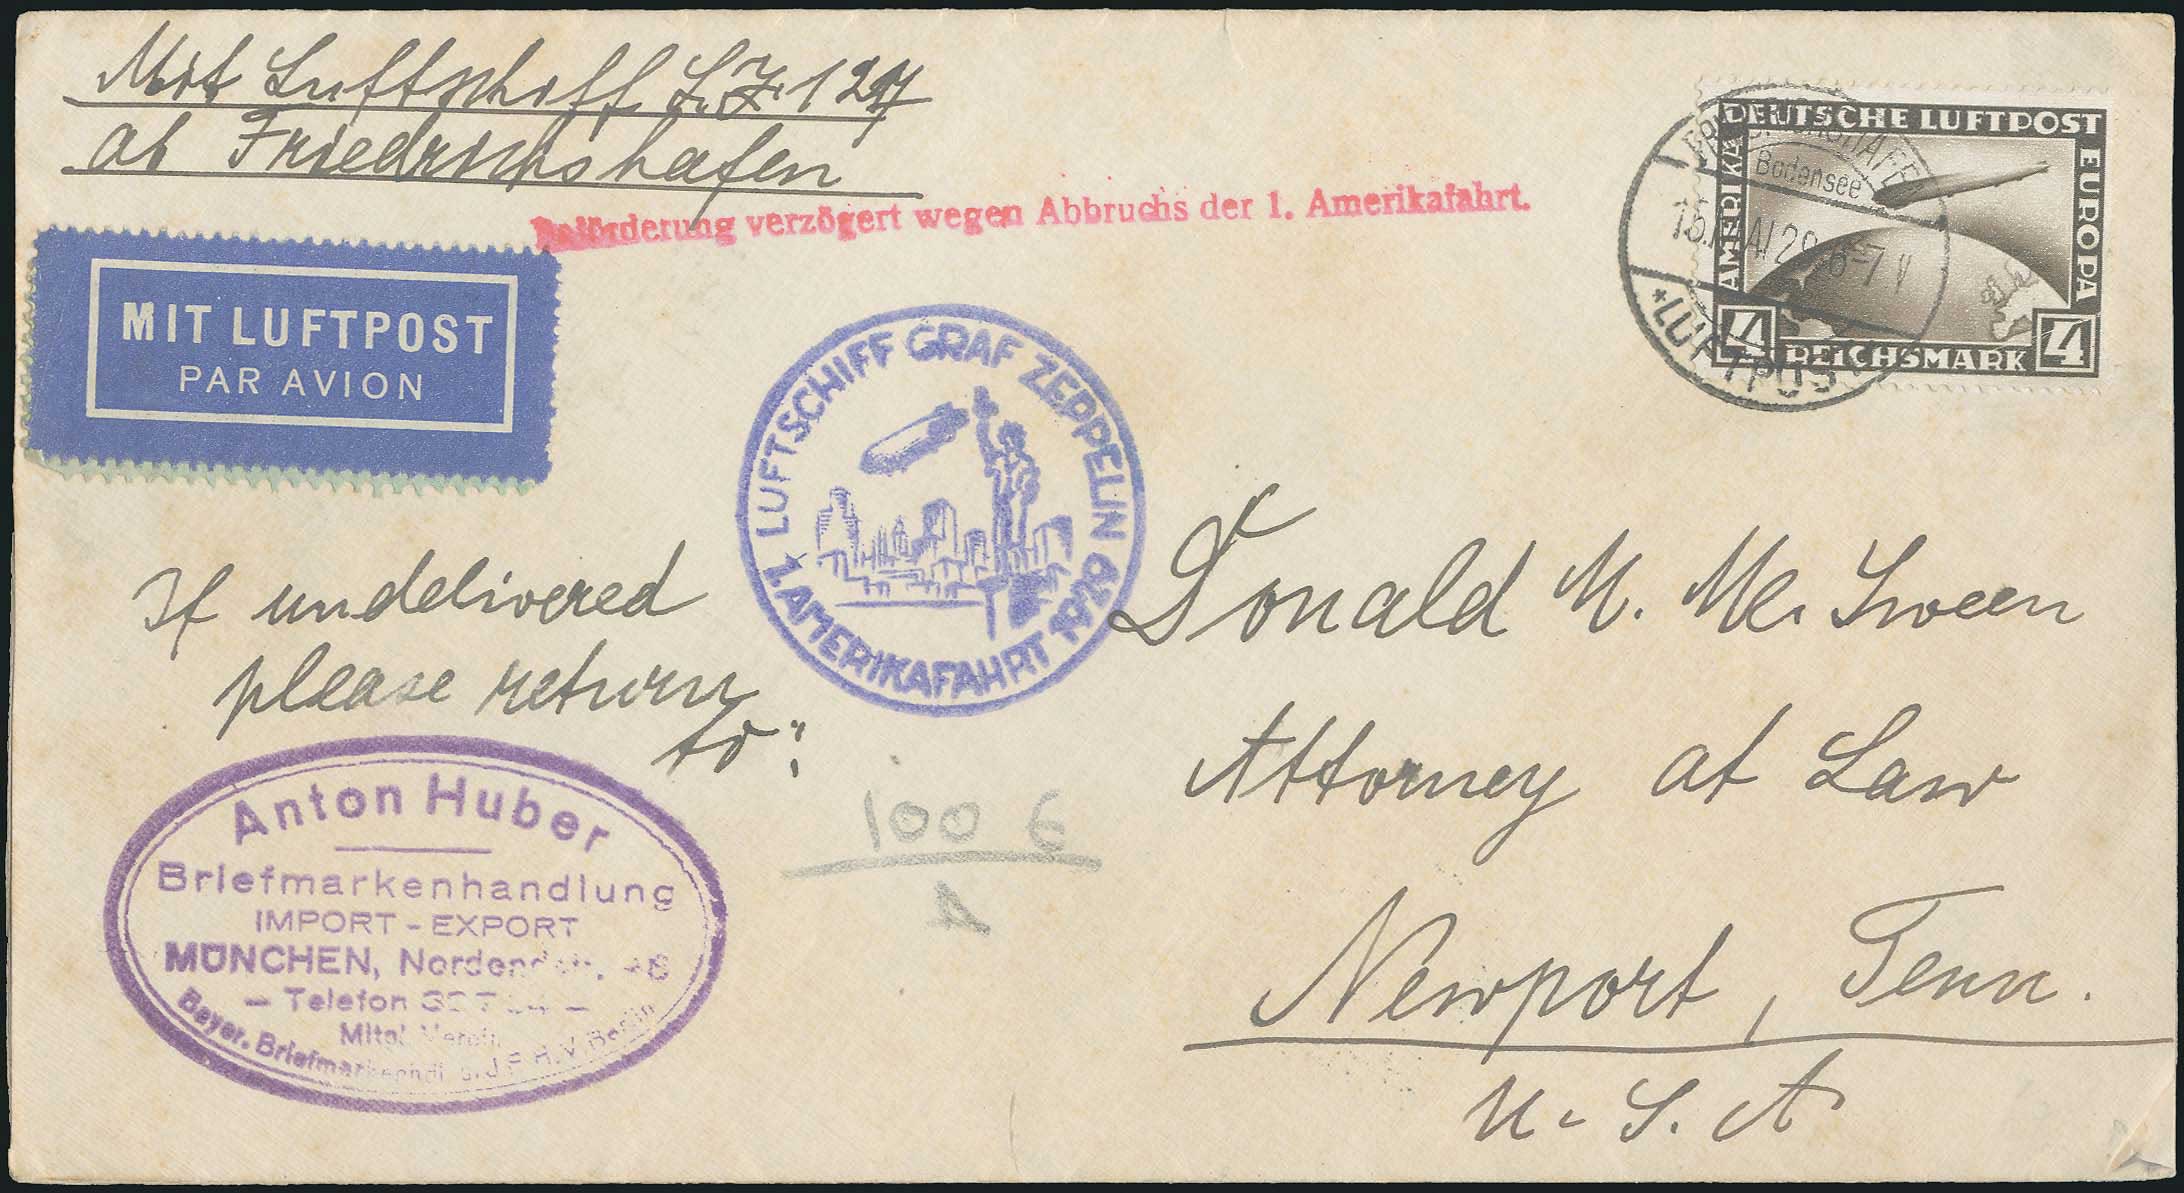 Mit Luftschiff L.Z. 127
ab Friedrichshafen
Beförderung verzögert wegen Abbruchs der 1. Amerikafahrt.
MIT LUFTPOST
PAR AVION
DEUTSCHE LUFTPOST
EUROPA
AMERIKA
4 REICHSMARK 4
FRIEDRICHSHAFEN
Bodensee
MAI 29 6-7 V
*LUFTPOST
LUFTSCHIFF GRAF ZEPPELIN
1. AMERIKAFAHRT 1929
If undelivered
please return
to:
Donald M. Mc. Sween
Attorney at Law
Newport, Tenn.
U. S. A
100 6
Anton Huber
Briefmarkenhandlung
IMPORT - EXPORT
MÜNCHEN, Nordendstr.
- Telefon
Mitgl. Verein
Bayer. Briefmarkenhdl. J.P.H.V. Berlin